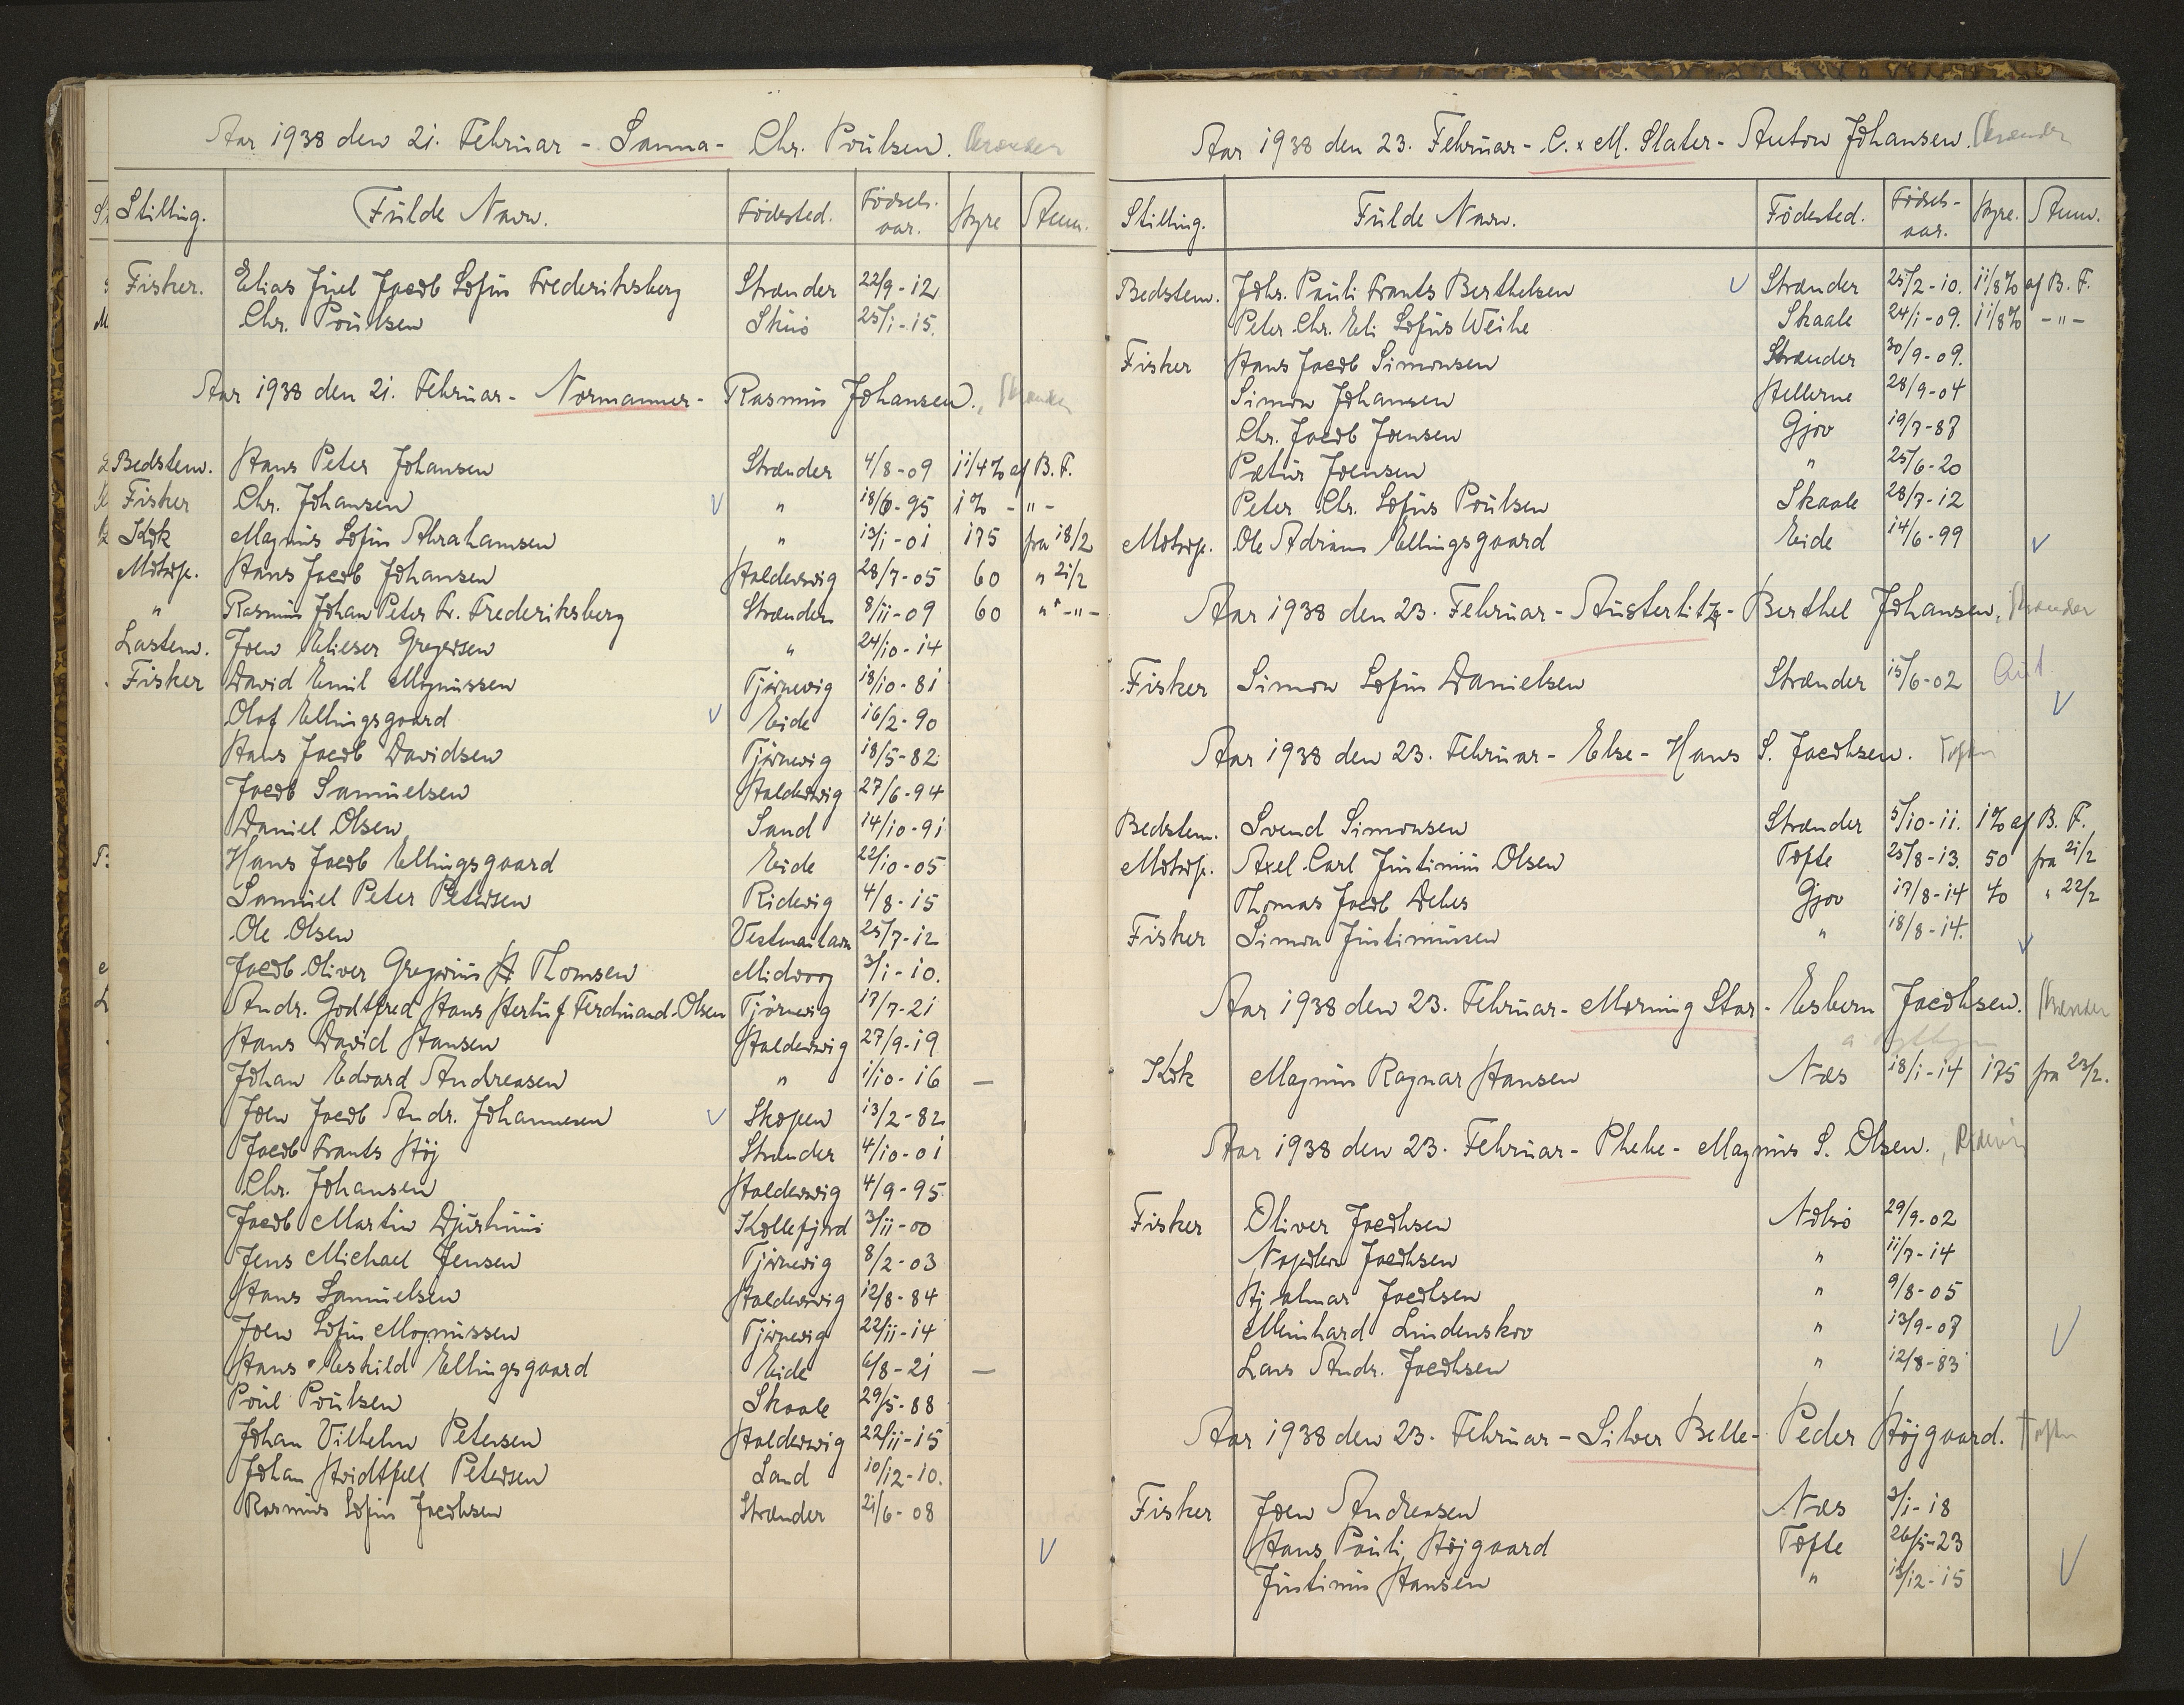 Aar 1938 den 21. Februar - Sanna - Chr. Poulsen. Strænder
Stilling. Fulde Navn. Födested. Födsels-aar. Hyre Anm.
Fisker. Elias Juel Jacob Sofus Frederiksberg Strænder 22/9-12
Chr. Poulsen Skuö 25/1-15.
Aar 1938 den 21. Februar - Normanner - Rasmus Johansen., Strænder
Bedstem. Hans Peter Johansen Strænder 4/8-09 1 1/4% af B. F.
Fisker Chr. Johansen V " 18/6-95 1% - " -
Kok Magnus Sofus Abrahamsen " 13/1-01 175 fra 18/2
Motorp. Hans Jacob Johansen Haldersvig 28/7-05 60 " 21/2
" Rasmus Johan Peter Fr. Frederiksberg Strænder 8/11-09 60 " - " -
Lastem. Joen Elieser Gregersen " 24/10-14
Fisker David Emil Magnussen Tjörnevig 18/10-81
Olaf Ellingsgaard V Eide 16/2-90
Hans Jacob Davidsen Tjörnevig 18/5-82
Jacob Samuelsen Haldersvig 27/6-94
Daniel Olsen Sand 14/10-91
Hans Jacob Ellingsgaard Eide 22/10-05
Samuel Peter Petersen Ridevig 4/8-15
Ole Olsen Vestmanhavn 25/7-12
Jacob Oliver Gregorius Thomsen Midvaag 3/1-10.
Andr. Godtfred Hans Herluf Ferdinand Olsen Tjörnevig 17/7-21
Hans David Hansen Haldersvig 27/9-19
Johan Edvard Andreasen " 1/10-16 —
Joen Jacob Andr. Johannesen V Skopen 13/2-82
Jacob Frants Höj Strænder 4/10-01
Chr. Johansen Haldersvig 4/9-95
Jacob Martin Djurhuus Kollefjord 3/11-00
Jens Michael Jensen Tjörnevig 8/2-03
Hans Samuelsen Haldersvig 12/8-84
Joen Sofus Magnussen Tjörnevig 22/11-14
Hans Eskild Ellingsgaard Eide 6/8-21 —
Poul Poulsen Skaale 29/5-88
Johan Vilhelm Petersen Haldersvig 22/11-15
Johan Hvidtfelt Petersen Sand 10/12-10.
Rasmus Sofus Jacobsen Strænder 21/6-08
V
Aar 1938 den 23. Februar - C. & M. Slater - Anton Johansen. Strænder
Stilling. Fulde Navn. Födested. Födsels-aar. Hyre. Anm.
Bedstem. Johs. Pauli Frants Berthelsen V Strænder 25/2-10. 1 1/8% af B. F.
Peter Chr. Eli Sofus Weihe Skaale 24/1-09. 1 1/8% - " -
Fisker Hans Jacob Simonsen Strænder 30/9-09.
Simon Johansen Hellerne 28/9-04
Chr. Jacob Joensen Gjov 19/7-87
Pætur Joensen " 25/6-20
Peter Chr. Sofus Poulsen Skaale 28/7-12
Motorp. Ole Adrians Ellingsgaard Eide 14/6-99 V
Aar 1938 den 23. Februar - Austerlitz - Berthel Johansen, Strænder
Fisker Simon Sofus Danielsen Strænder 15/6-02
V
Aar 1938 den 23. Februar - Else - Hans S. Jacobsen. Toften
Bedstem. Svend Simonsen Strænder 5/10-11. 1% af B. F.
Motorp. Axel Carl Justinus Olsen Tofte 25/8-13. 50 fra 21/2
Thomas Jacob Debes Gjov 17/8-14 40 " 22/2
Fisker Simon Justinussen " 18/8-14. V
Aar 1938 den 23. Februar - Morning Star - Esbern Jacobsen. Strænder
Kok Magnus Ragnar Hansen Næs 18/1-14 175 fra 23/2.
Aar 1938 den 23. Februar - Phebe - Magnus S. Olsen., Ridevig
Fisker Oliver Jacobsen Nolsö 29/9-02
Napoleon Jacobsen " 11/7-14
Hjalmar Jacobsen " 9/8-05
Meinhard Lindenskov " 13/9-07 V
Lars Andr. Jacobsen " 12/8-83
Aar 1938 den 23. Februar - Silver Belle - Peder Höjgaard. Toften
Fisker Joen Andreasen Næs 3/1-18
Hans Pauli Höjgaard Tofte 26/5-23
Justinus Hansen " 13/12-15 V